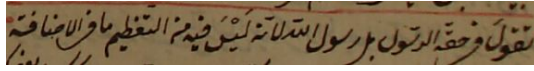 تقول فى حقه الرسول بل رسول الله لانه لَيْسَ فيه من التعظيم ما فى الاضافة